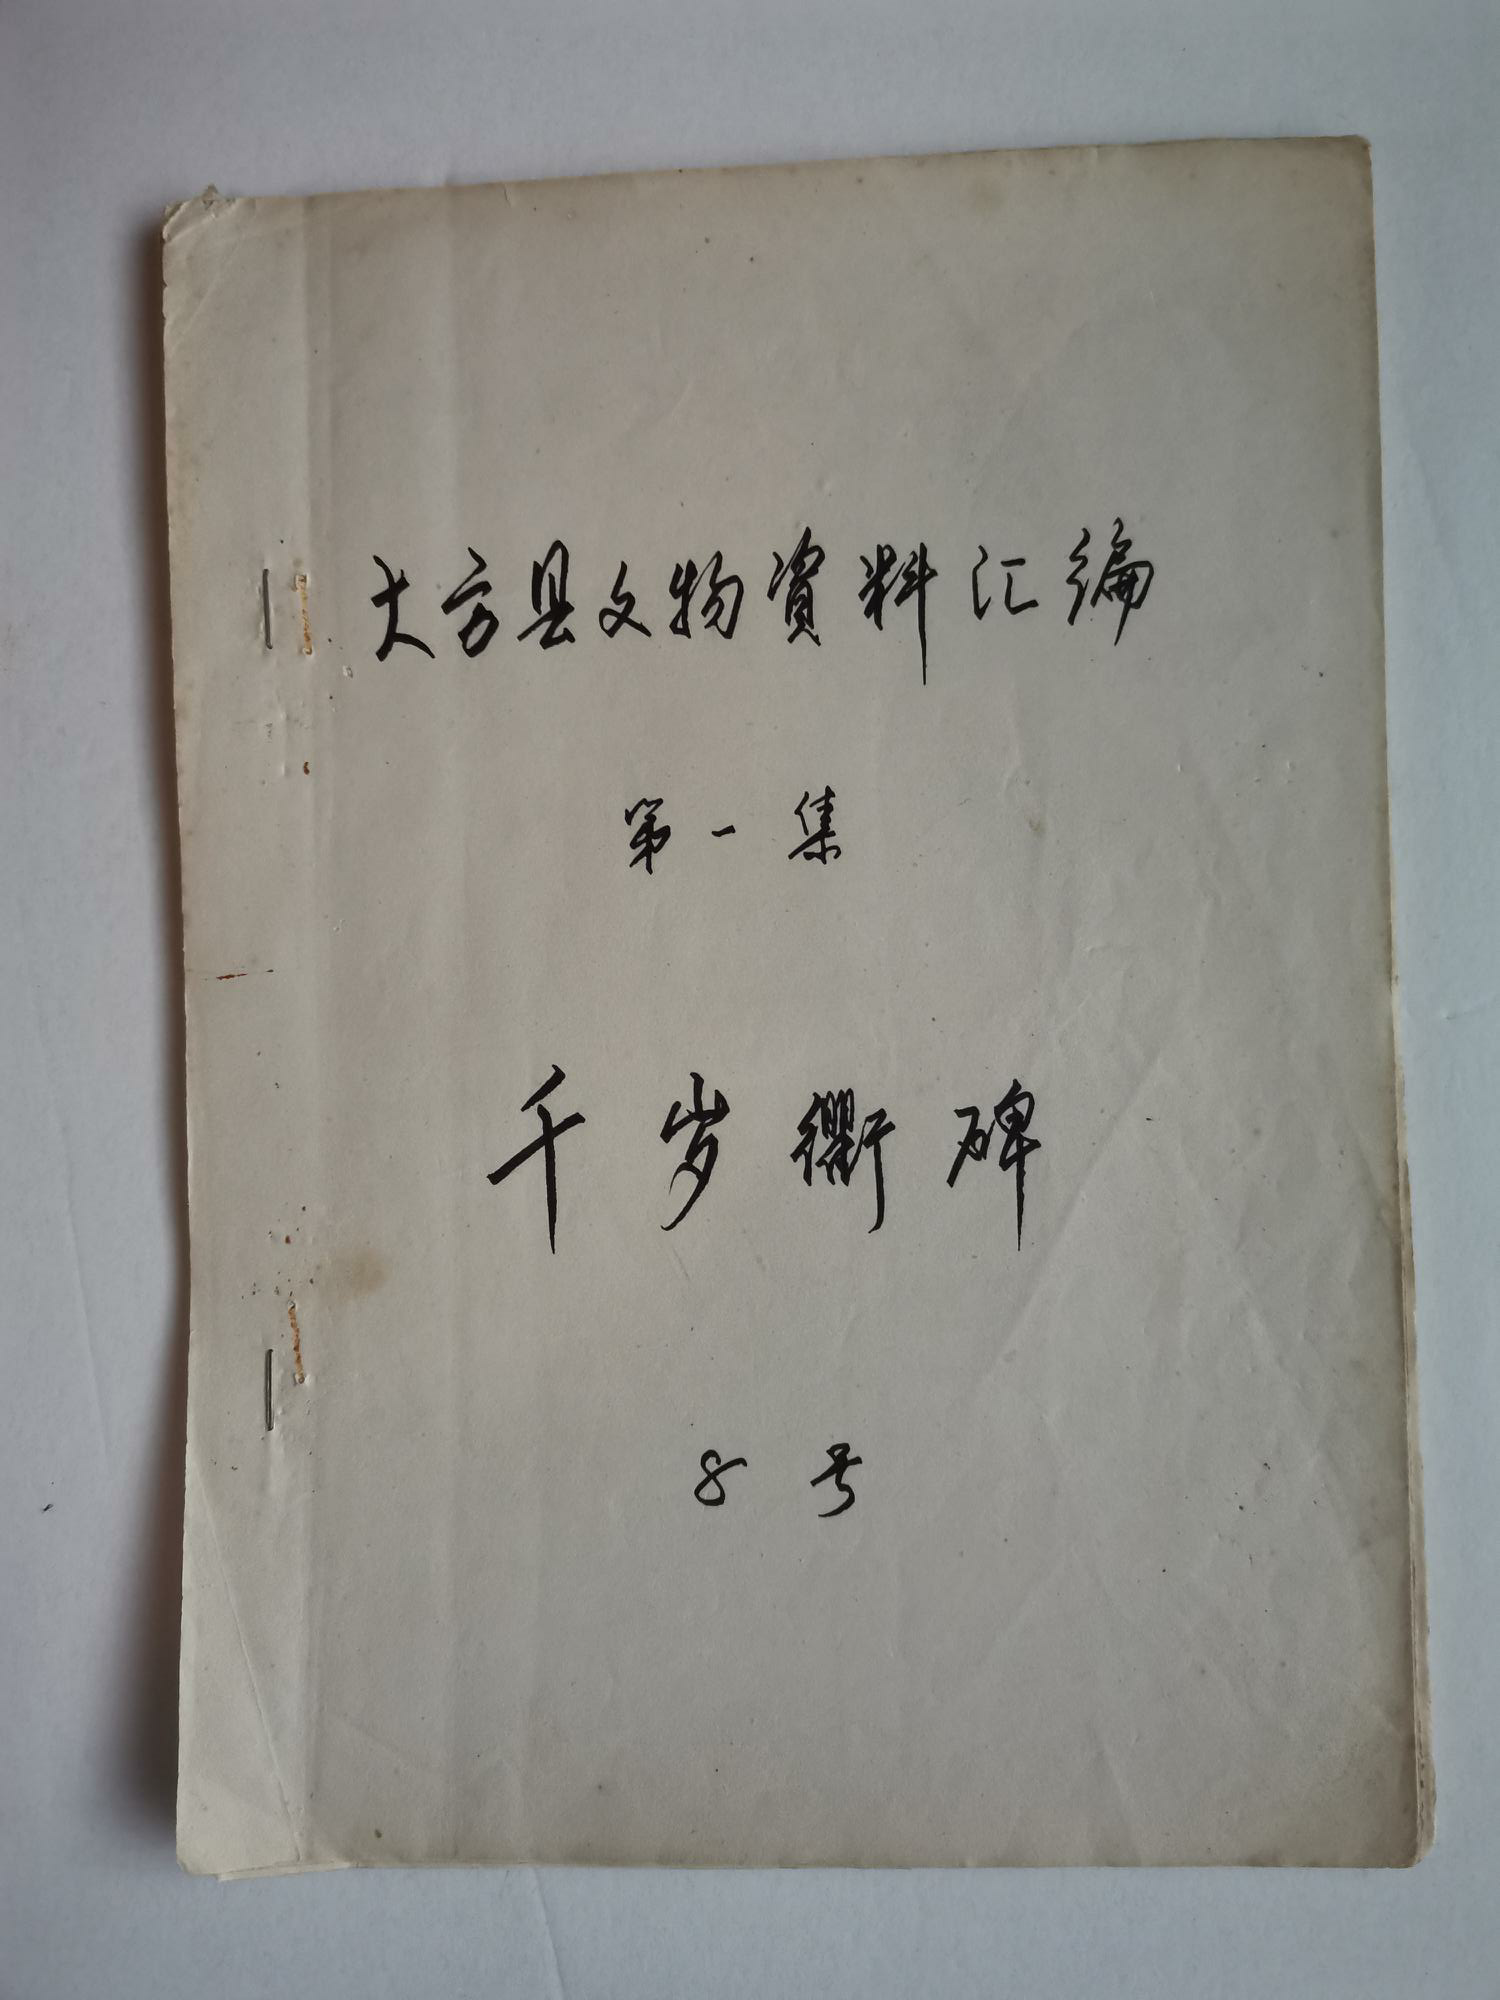 大方县文物資料汇编
第一集
千岁衢碑
8号